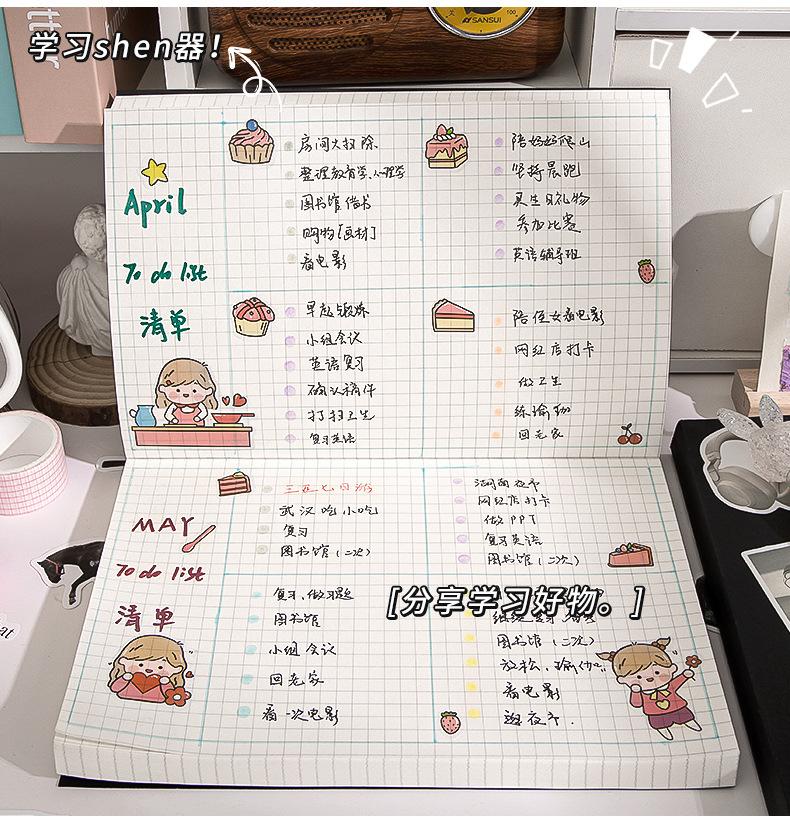 学习shen器！
SANSUI
100
April
To do list
清单
房间大扫除
整理教育学、心理学
图书馆借书
购物[画材]
看电影
陪妈妈爬山
坚持晨跑
买生日礼物
参加比赛
英语辅导班
早起锻炼
小组会议
英语复习
确认稿件
打扫卫生
复习英语
陪侄女看电影
网红店打卡
做卫生
练瑜珈
回老家
MAY
To do list
清单
武汉吃小吃
复习
图书馆（二次）
夜市
网红店打卡
做PPT
复习英语
图书馆（二次）
复习、做习题
图书馆
小组会议
回老家
看一次电影
[分享学习好物。]
图书馆（二次）
放松、瑜伽
看电影
逛夜市.